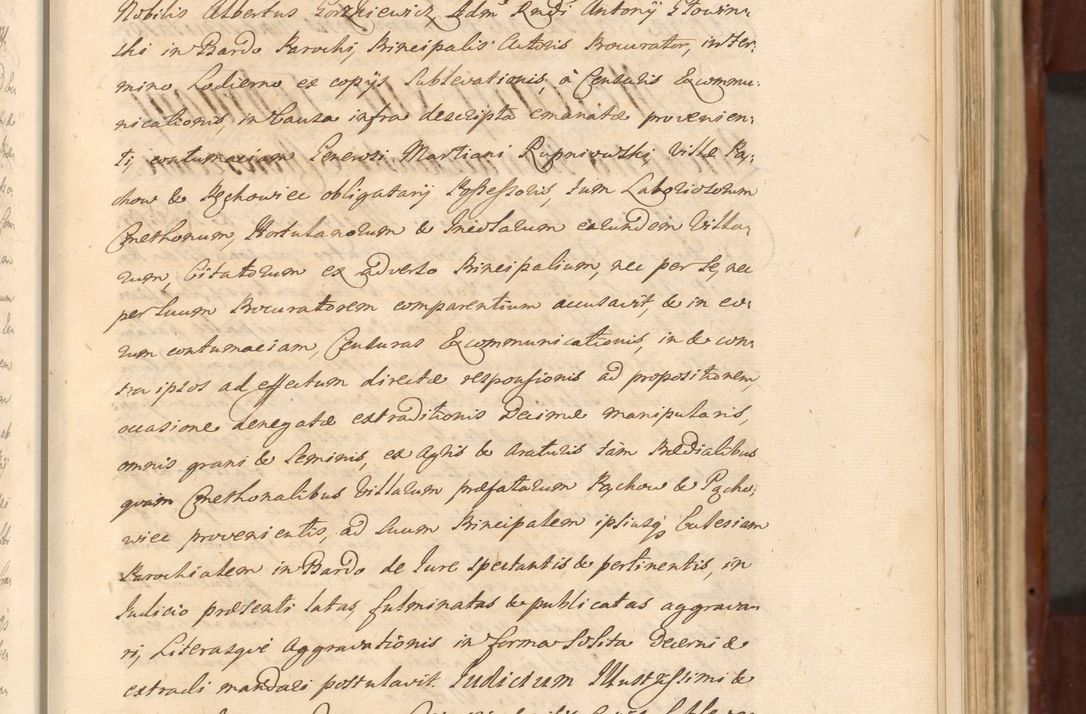 Nobilis Albertus Gorzkiewicz Admo Rndi Antonÿ Słowin,
ski in Bardo Parochi, Principalis Actoris Procurator, in ter,
mino hodierno ex copÿs sublevationis, à Censuris Excommu,
nicationis, in Causa infra descripta emanatæ provenien,
ti, contumaciam Generosi Martiani Rupniowski, Villæ Pą,
chow & Pąchowiec obligatarÿ Possessoris, tum Laboriosorum
Cmethonum, Hortulanorum & Incolarum earundem Villa,
rum, Citatorum ex adverso Principalium, nec per se, nec
per suum Procuratorem comparentium accusavit, & in eo,
rum contumaciam, Censuras Excommunicationis, in & con,
tra ipsos ad effectum directæ responsionis ad propositionem,
occasione denegatæ extraditionis Decimæ manipularis,
omnis grani & seminis, ex Agris & Araturis tàm Prædialibus
quàm Cmethonalibus Villarum præfatarum Pąchow & Pącho,
wiec provenientis, ad suum Principalem ipsiusq̨ Ecclesiam
Parochialem in Bardo de Jure spectantis & pertinentis, in
Judicio præsenti latas, fulminatas & publicatas aggrava,
ri, Literasque Aggravationis in forma solita Decerni &
extradi mandari postulavit. Judicium Illustrissimi &